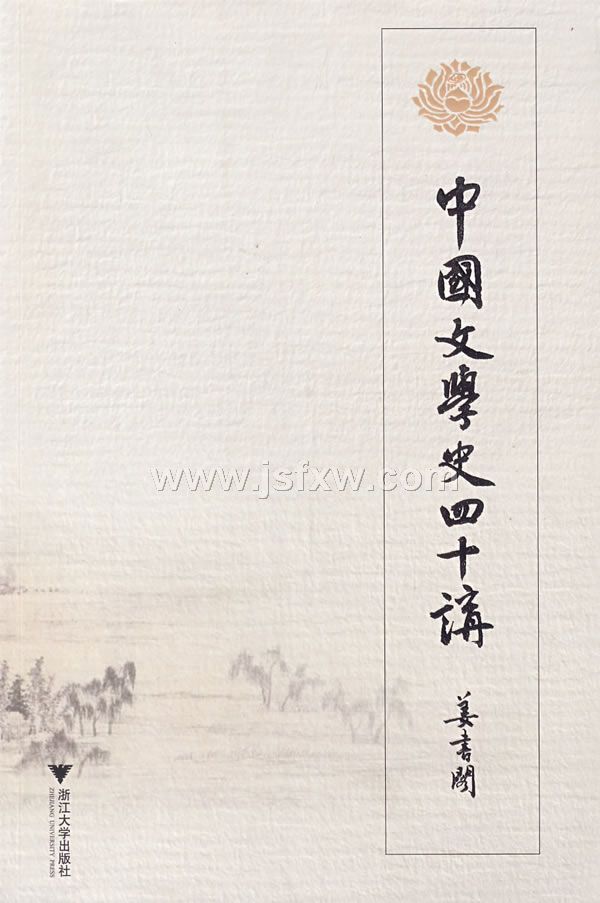 中國文學史四十講
姜書閣
www.jsfxw.com
浙江大学出版社
ZHEJIANG UNIVERSITY PRESS